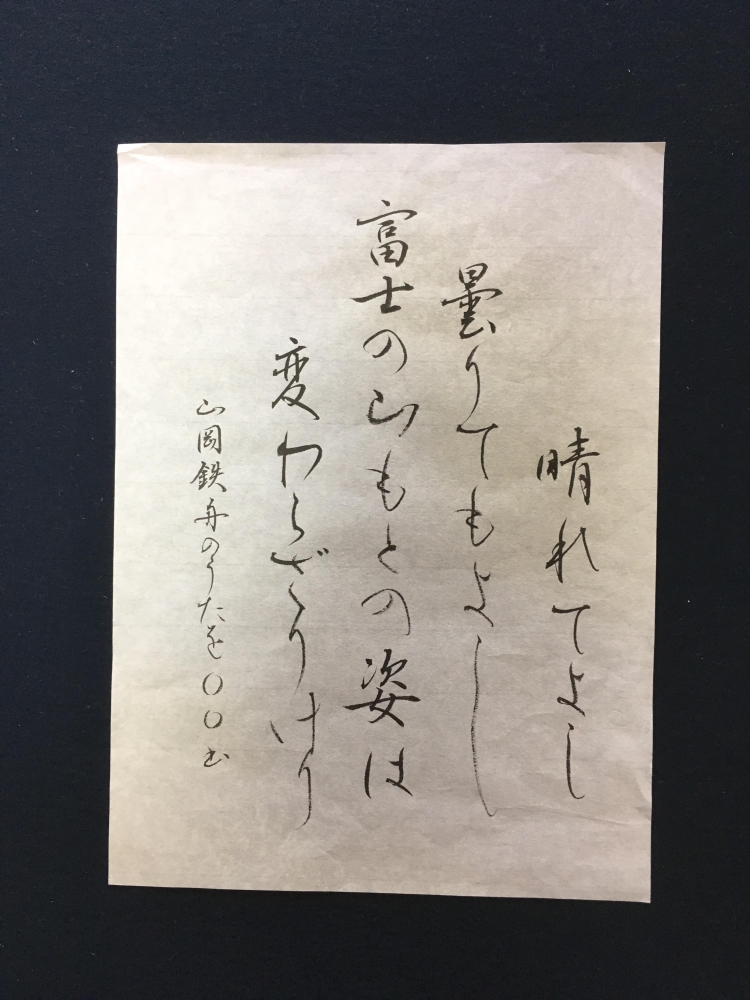 晴れてよし
曇りてもよし
富士の山もとの姿は
変わらざりけり
山岡鉄舟のうたを〇〇書